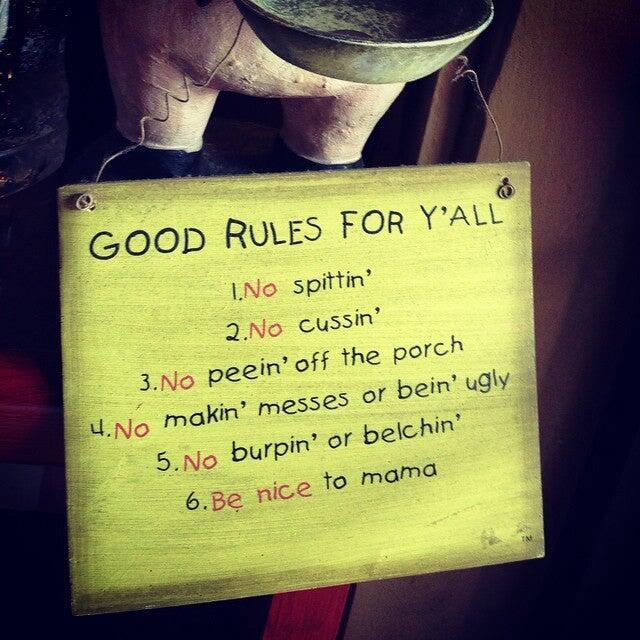 GOOD RULES FOR Y'ALL
1.No spittin'
2.No cussin'
3.No peein' off the porch
4.No makin' messes or bein' ugly
5.No burpin' or belchin'
6.Be nice to mama
TM